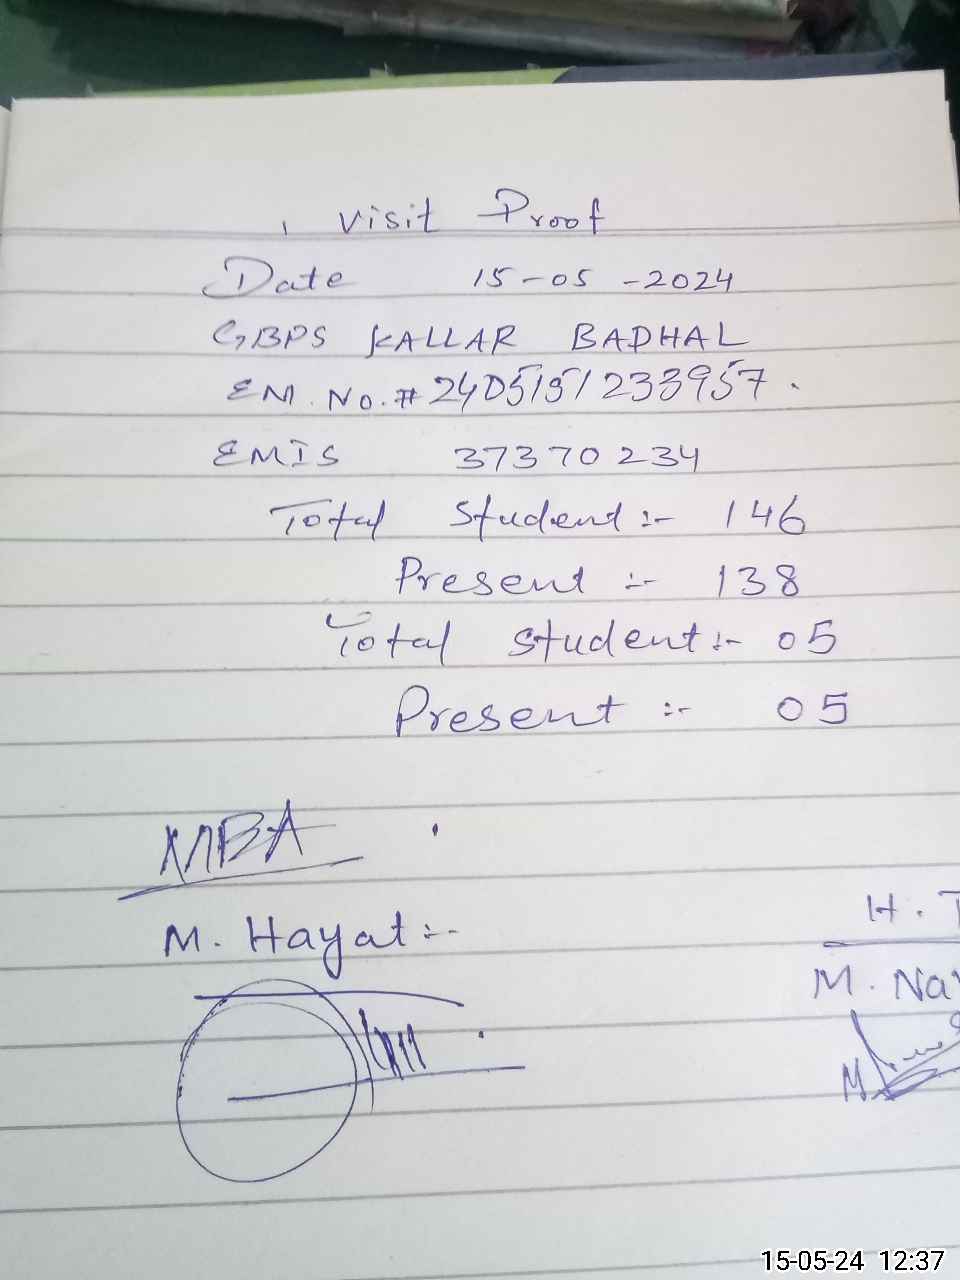 Visit Proof
Date 15-05-2024
GBPS KALLAR BADHAL
EM. No. # 2405151233957.
EMIS 37370234
Total Student :- 146
Present :- 138
Total student :- 05
Present :- 05
MBA
H. T
M. Hayat :-
M. Na
15-05-24 12:37